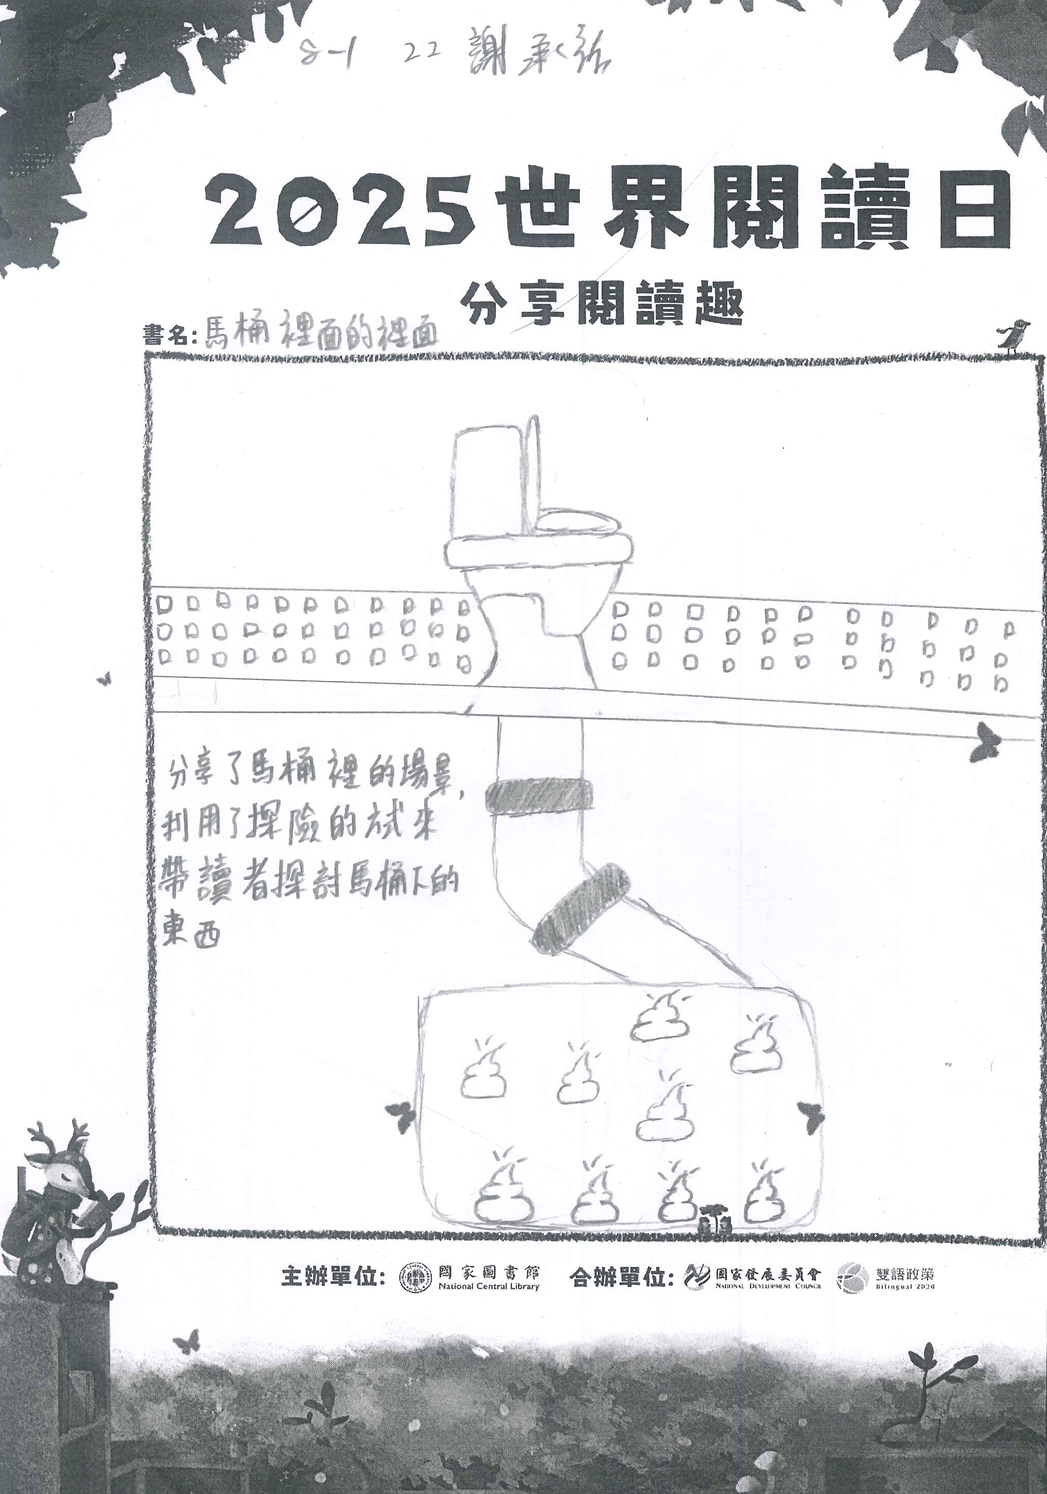 8-1 22 謝承
2025世界閱讀日
分享閱讀趣
書名:馬桶裡面的裡面
分享了馬桶裡的場景,
利用了探險的方式來
帶讀者探討馬桶下的
東西
主辦單位: 國家圖書館 National Central Library 合辦單位: 國家發展委員會 National Development Council 雙語政策 Bilingual 2030